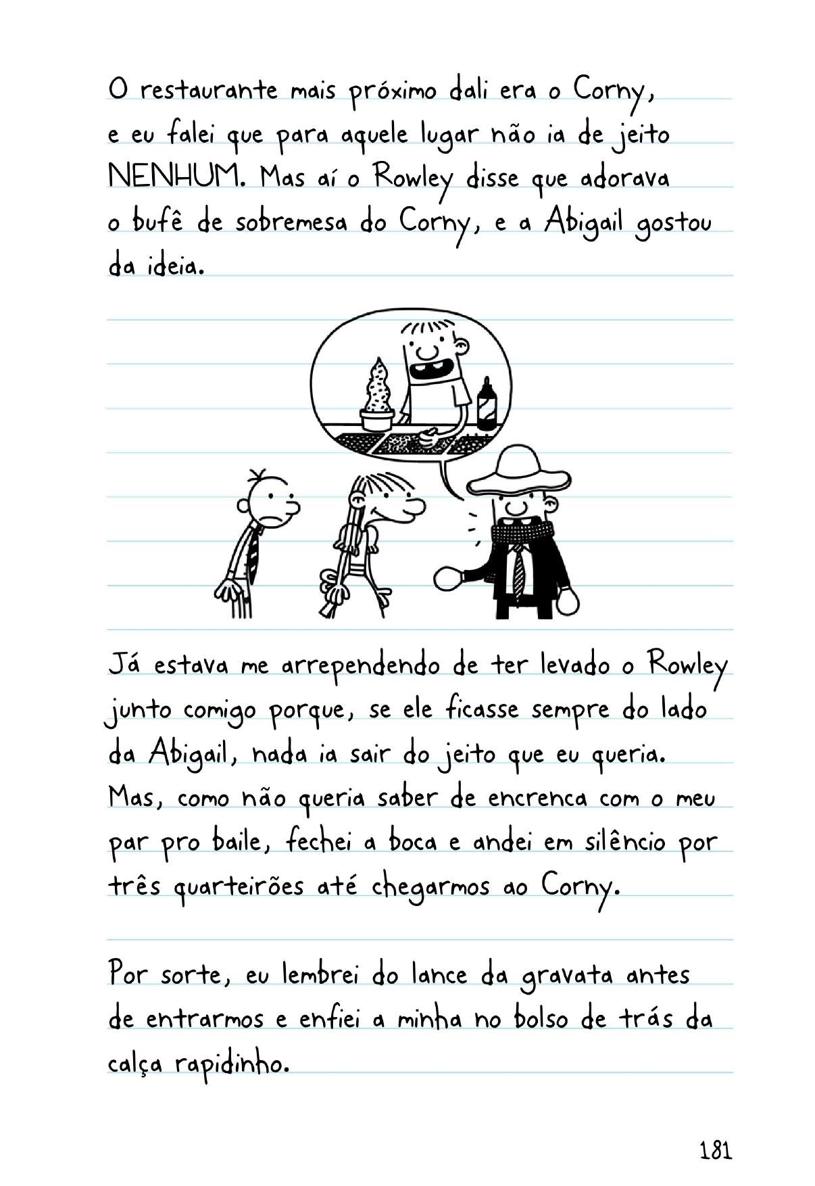 O restaurante mais próximo dali era o Corny,
e eu falei que para aquele lugar não ia de jeito
NENHUM. Mas aí o Rowley disse que adorava
o bufê de sobremesa do Corny, e a Abigail gostou
da ideia.
Já estava me arrependendo de ter levado o Rowley
junto comigo porque, se ele ficasse sempre do lado
da Abigail, nada ia sair do jeito que eu queria.
Mas, como não queria saber de encrenca com o meu
par pro baile, fechei a boca e andei em silêncio por
três quarteirões até chegarmos ao Corny.
Por sorte, eu lembrei do lance da gravata antes
de entrarmos e enfiei a minha no bolso de trás da
calça rapidinho.
181